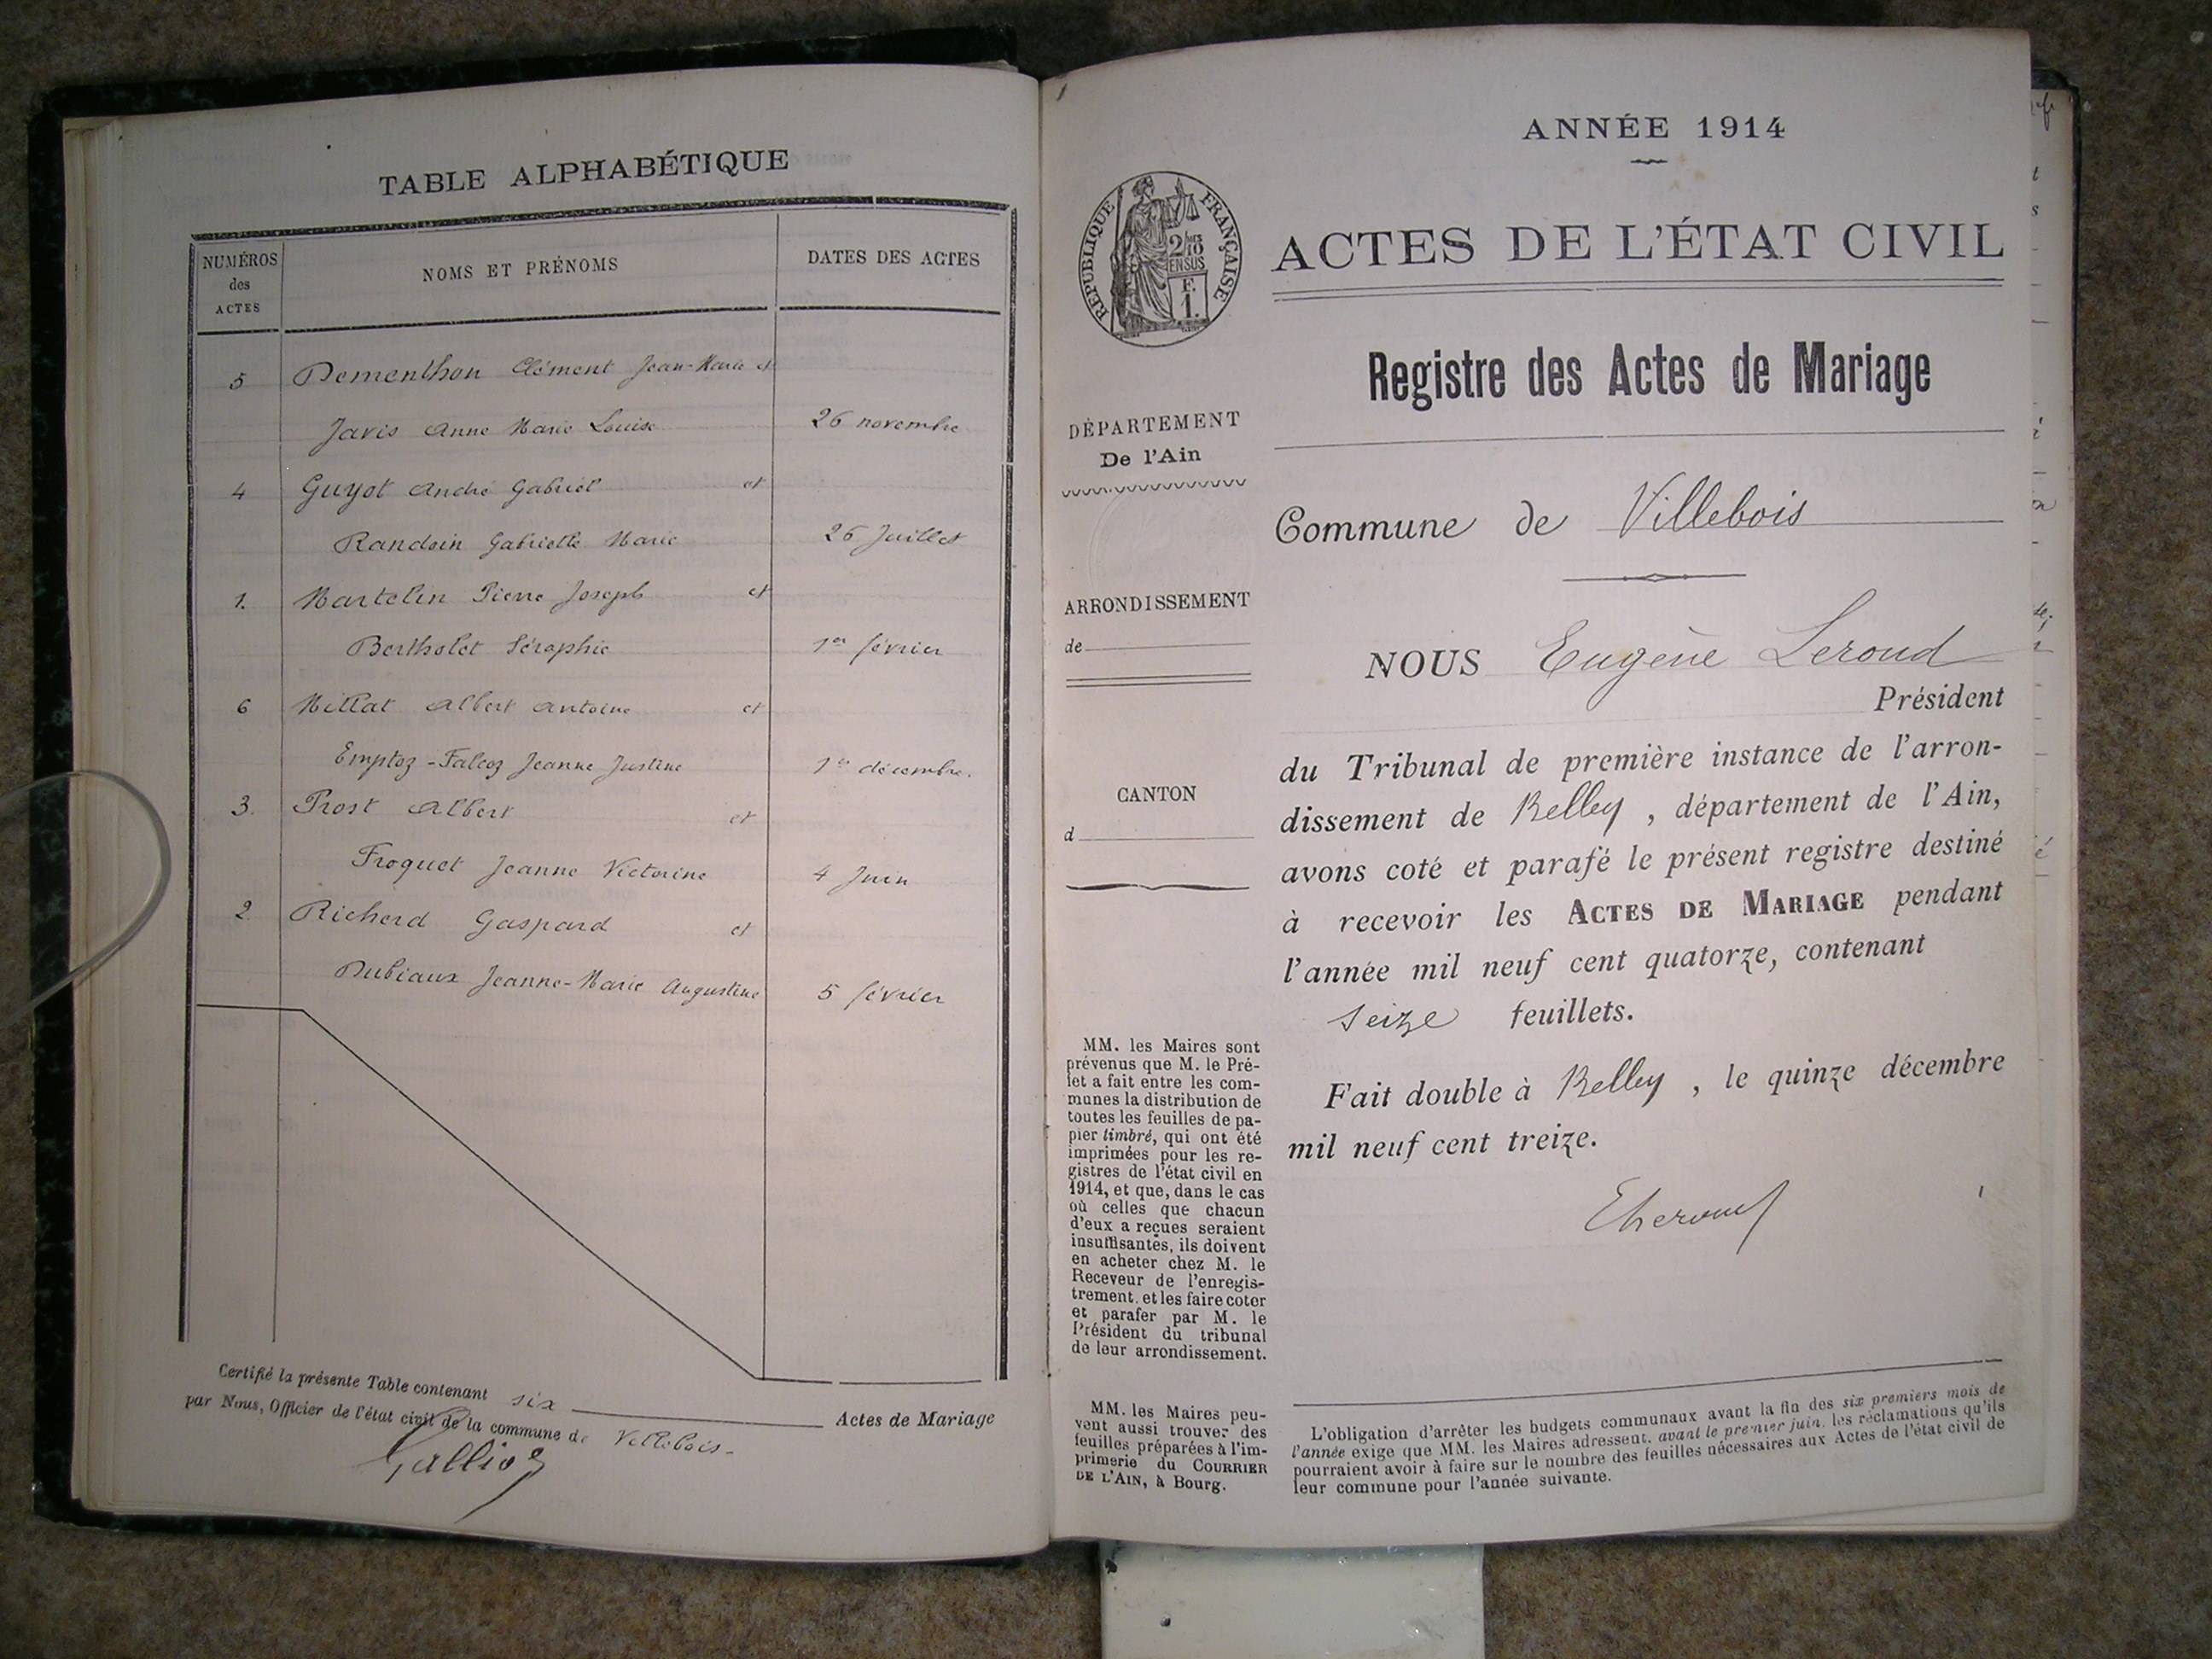 TABLE ALPHABÉTIQUE
NUMÉROS des ACTES
NOMS ET PRÉNOMS
DATES DES ACTES
5 Dementhon Clément Jean-Marie et
Javis Anne Marie Louise 26 novembre
4 Guyot André Gabriel et
Randoin Gabrielle Marie 26 Juillet
1. Martelin Pierre Joseph et
Bertholet Séraphie 1er février
6 Millat Albert Antoine et
Emptoz-Falcoz Jeanne Justine 1er décembre.
3. Prost Albert et
Froquet Jeanne Victorine 4 Juin
2. Richerd Gaspard et
Dubiaux Jeanne-Marie Augustine 5 février
Certifié la présente Table contenant six Actes de Mariage
par Nous, Officier de l'état civil de la commune de Villebois.
ANNÉE 1914
RÉPUBLIQUE FRANÇAISE
2/10 EN SUS
F. 1.
ACTES DE L'ÉTAT CIVIL
Registre des Actes de Mariage
DÉPARTEMENT
De l'Ain
Commune de Villebois
ARRONDISSEMENT
de
CANTON
d
NOUS Eugène Leroud
Président
du Tribunal de première instance de l'arron-
dissement de Belley, département de l'Ain,
avons coté et parafé le présent registre destiné
à recevoir les ACTES DE MARIAGE pendant
l'année mil neuf cent quatorze, contenant
seize feuillets.
Fait double à Belley, le quinze décembre
mil neuf cent treize.
MM. les Maires sont
prévenus que M. le Pré-
fet a fait entre les com-
munes la distribution de
toutes les feuilles de pa-
pier timbré, qui ont été
imprimées pour les re-
gistres de l'état civil en
1914, et que, dans le cas
où celles que chacun
d'eux a reçues seraient
insuffisantes, ils doivent
en acheter chez M. le
Receveur de l'enregis-
trement. et les faire coter
et parafer par M. le
Président du tribunal
de leur arrondissement.
MM. les Maires peu-
vent aussi trouver des
feuilles préparées à l'im-
primerie du COURRIER
DE L'AIN, à Bourg.
L'obligation d'arrêter les budgets communaux avant la fin des six premiers mois de
l'année exige que MM. les Maires adressent, avant le premier juin, les réclamations qu'ils
pourraient avoir à faire sur le nombre des feuilles nécessaires aux Actes de l'état civil de
leur commune pour l'année suivante.